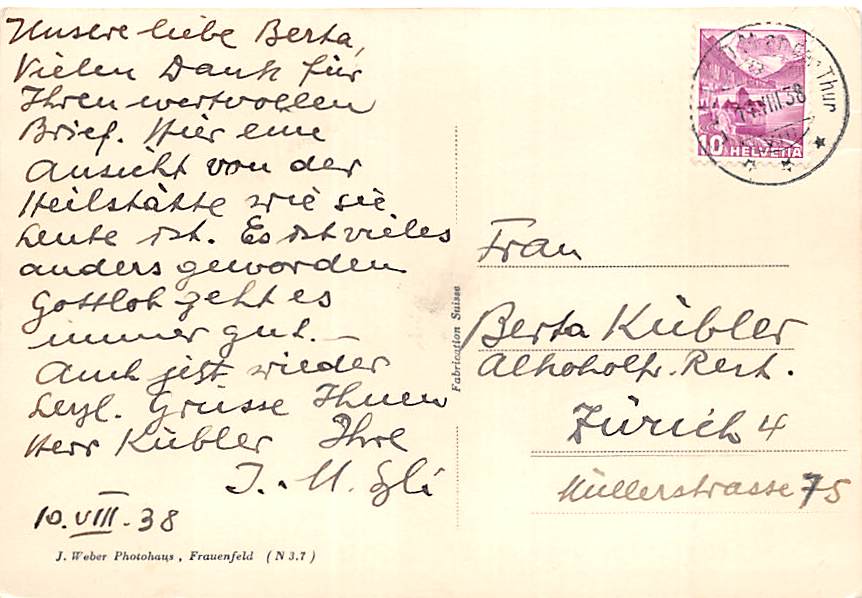 Unsere liebe Berta,
Vielen Dank für
Ihren wertvollen
Brief. Hier eine
Ansicht von der
Heilstätte wie sie
heute ist. Es ist vieles
anders geworden
Gottlob geht es
immer gut.-
Auch jetzt wieder
herzl. Grüsse Ihnen
Herr Kübler Ihre
10.VIII.38
J. Weber Photohaus, Frauenfeld (N 3.7)
Fabrication Suisse
10 HELVETIA
Thur
VIII 38
Frau
Berta Kübler
Alkoholfr. Rest.
Zürich 4
Müllerstrasse 75